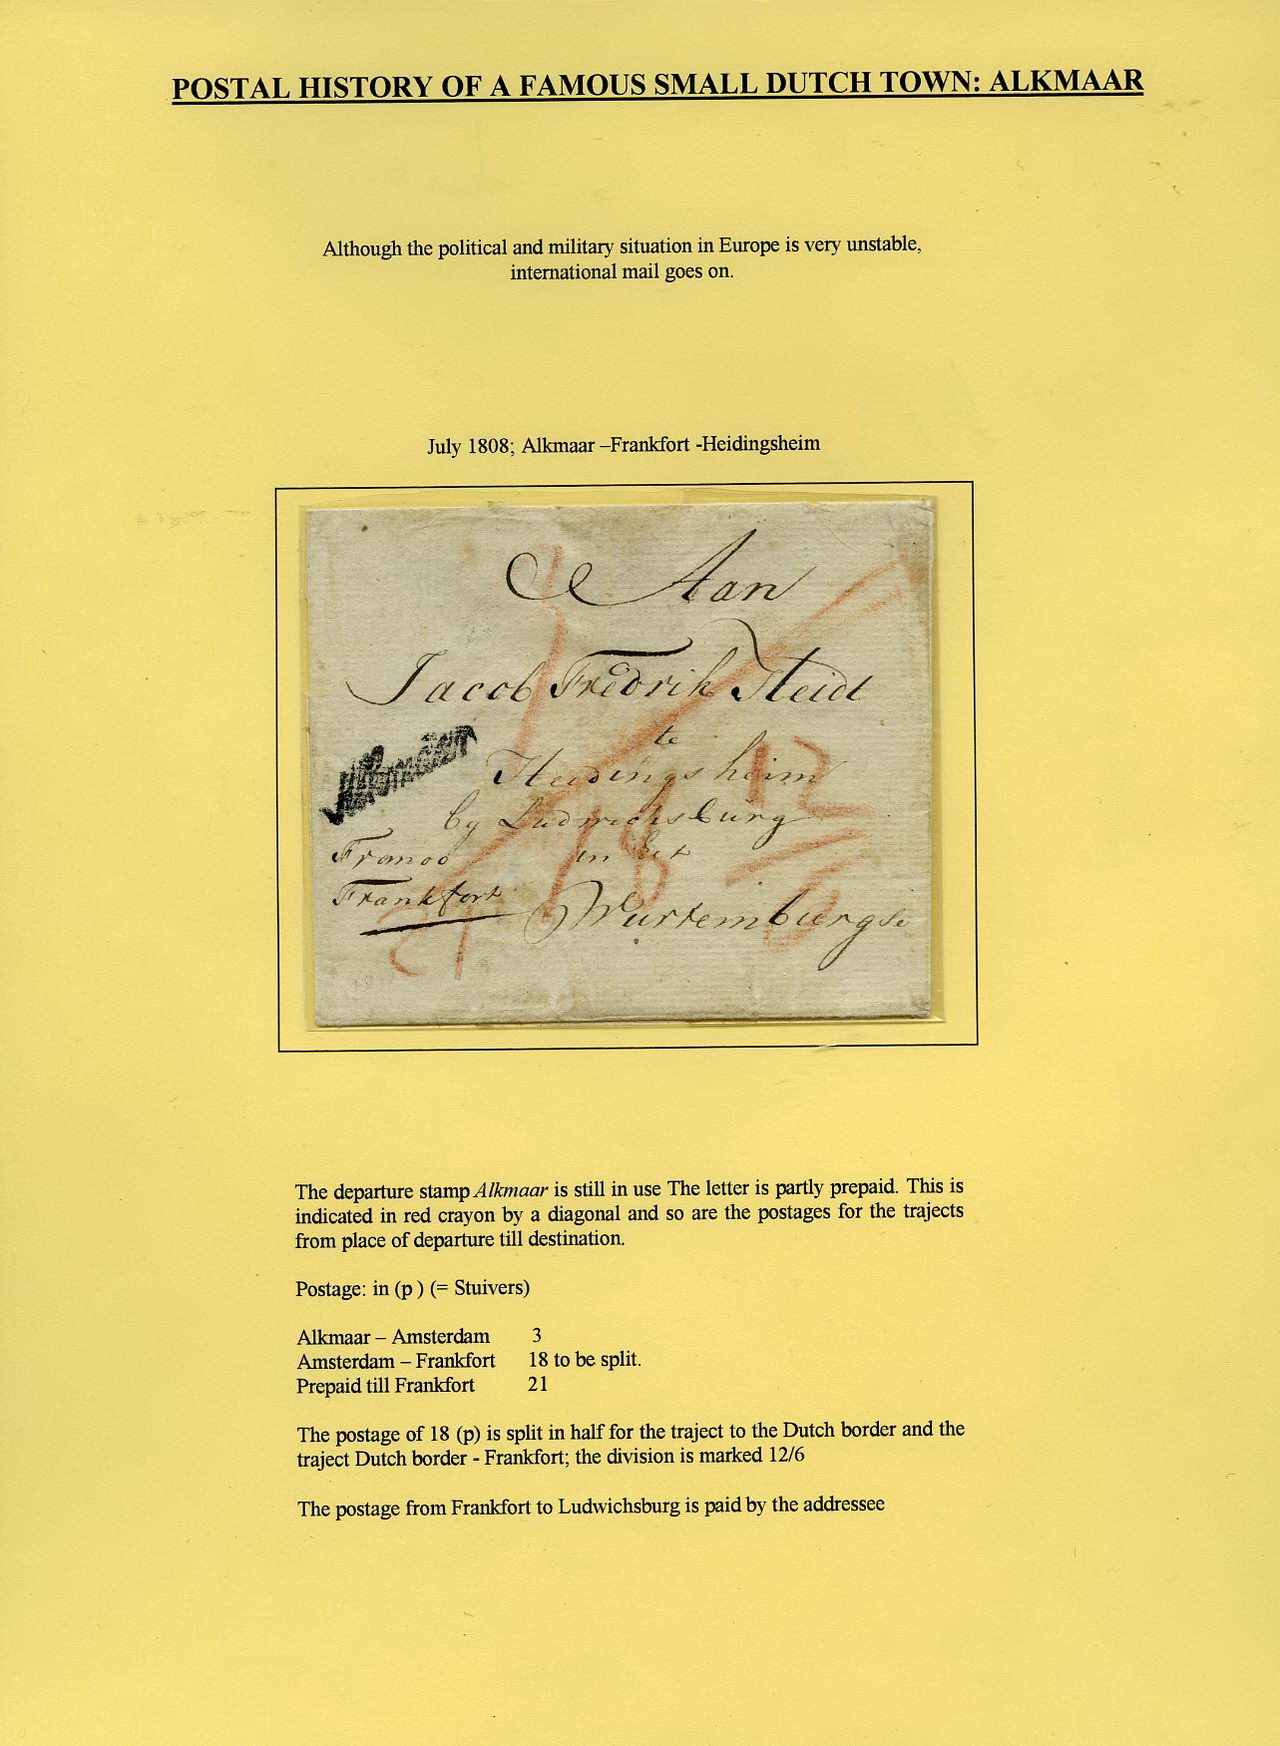 POSTAL HISTORY OF A FAMOUS SMALL DUTCH TOWN: ALKMAAR
Although the political and military situation in Europe is very unstable,
international mail goes on.
July 1808; Alkmaar –Frankfort -Heidingsheim
Aan
Jacob Fredrik Heidt
te
Heidingsheim
by Ludwichsburg
in het
Wurtemburgse
Alkmaar
Franco
Frankfort
12
18
6
21
The departure stamp Alkmaar is still in use The letter is partly prepaid. This is
indicated in red crayon by a diagonal and so are the postages for the trajects
from place of departure till destination.
Postage: in (p ) (= Stuivers)
Alkmaar – Amsterdam 3
Amsterdam – Frankfort 18 to be split.
Prepaid till Frankfort 21
The postage of 18 (p) is split in half for the traject to the Dutch border and the
traject Dutch border - Frankfort; the division is marked 12/6
The postage from Frankfort to Ludwichsburg is paid by the addressee